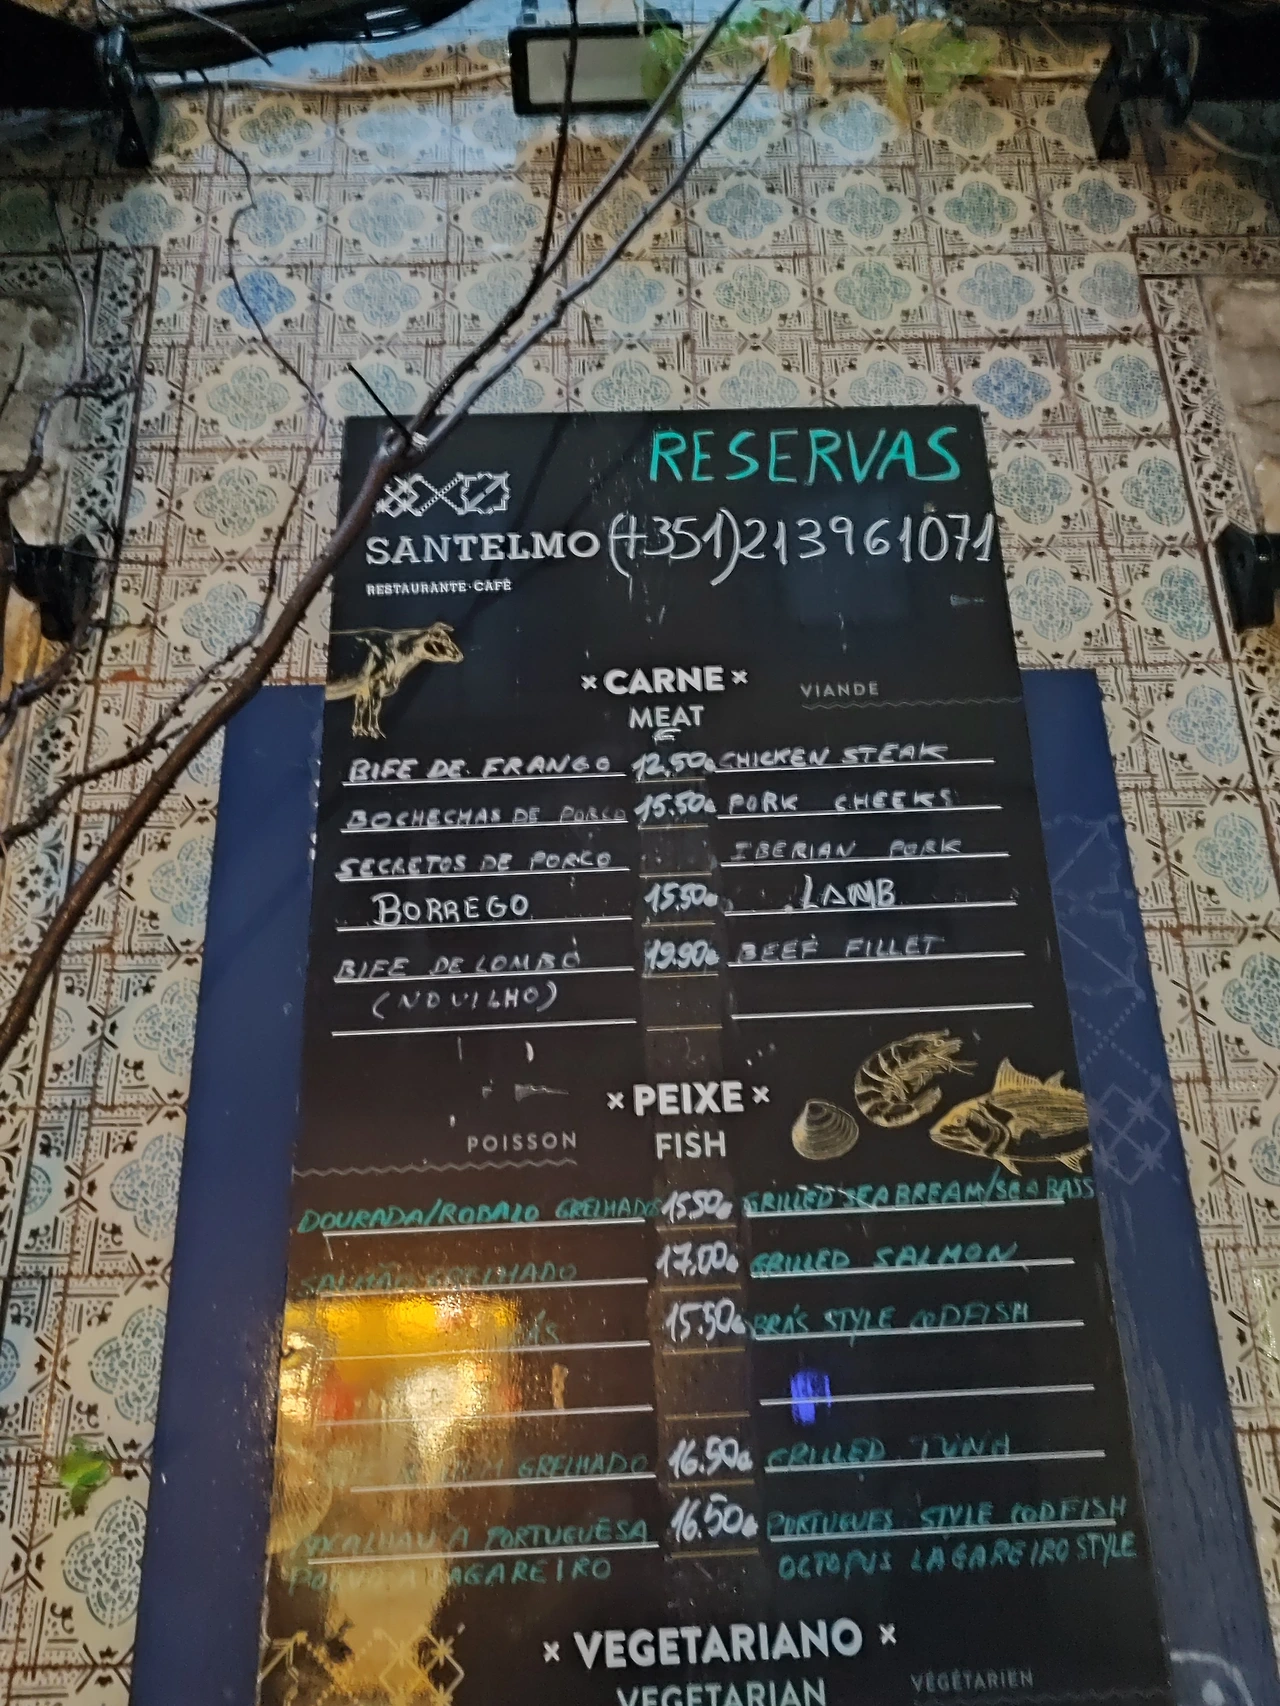 RESERVAS
SANTELMO (+351)213961071
RESTAURANTE · CAFÉ
× CARNE × VIANDE
MEAT
BIFE DE FRANGO 12,50€ CHICKEN STEAK
BOCHECHAS DE PORCO 15.50€ PORK CHEEKS
SECRETOS DE PORCO IBERIAN PORK
BORREGO 15.50€ LAMB
BIFE DE LOMBO 19.90€ BEEF FILLET
(NOVILHO)
× PEIXE ×
POISSON FISH
DOURADA/ROBALO GRELHADOS 15.50€ GRILLED SEABREAM/SEABASS
SALMÃO GRELHADO 17,00€ GRILLED SALMON
BRÁS 15.50€ BRÁS STYLE CODFISH
GRELHADO 16.50€ GRILLED TUNA
BACALHAU À PORTUGUESA 16.50€ PORTUGUES STYLE CODFISH
POLVO À LAGAREIRO OCTOPUS LAGAREIRO STYLE
× VEGETARIANO ×
VEGETARIAN VÉGÉTARIEN